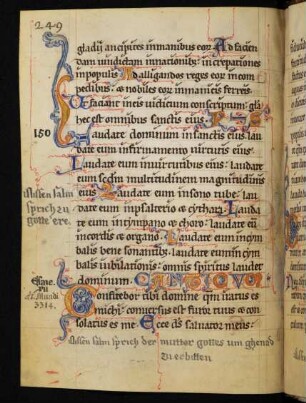 249
gladij ancipites inmanibus eoꝝ Ad facien
dam uindictam innationib; increpationes
inpopulis Ad alligandos reges eoꝝ incom
pedibus ⁊ nobiles eoꝝ inmanicis ferreis
Ut faciant ineis iudicium conscriptum gla
hec est omnibus sanctis eius
150
Laudate dominum insanctis eius lau
date eum infirmamento uirtutis eius
Laudate eum inuirtutibus eius laudate
eum secdm multitudinem magnitudinis
eius Laudate eum insono tube lau
date eum inpsalterio ⁊ cythara Lauda
te eum intympano ⁊ choro laudate eū
incordis ⁊ organo Laudate eum incym
balis bene sonantib; laudate eum incym
balis iubilationis omnis spiritus laudet
dominum
Confitebor tibi domine qm̄ iratus es
michi conuersus est furor tuus ⁊ con
solatus es me Ecce ds̄ saluator meus
dissen salm
sprich zu
gotte ere
3314
dissen salm sprich der mutter gottes um ghenad